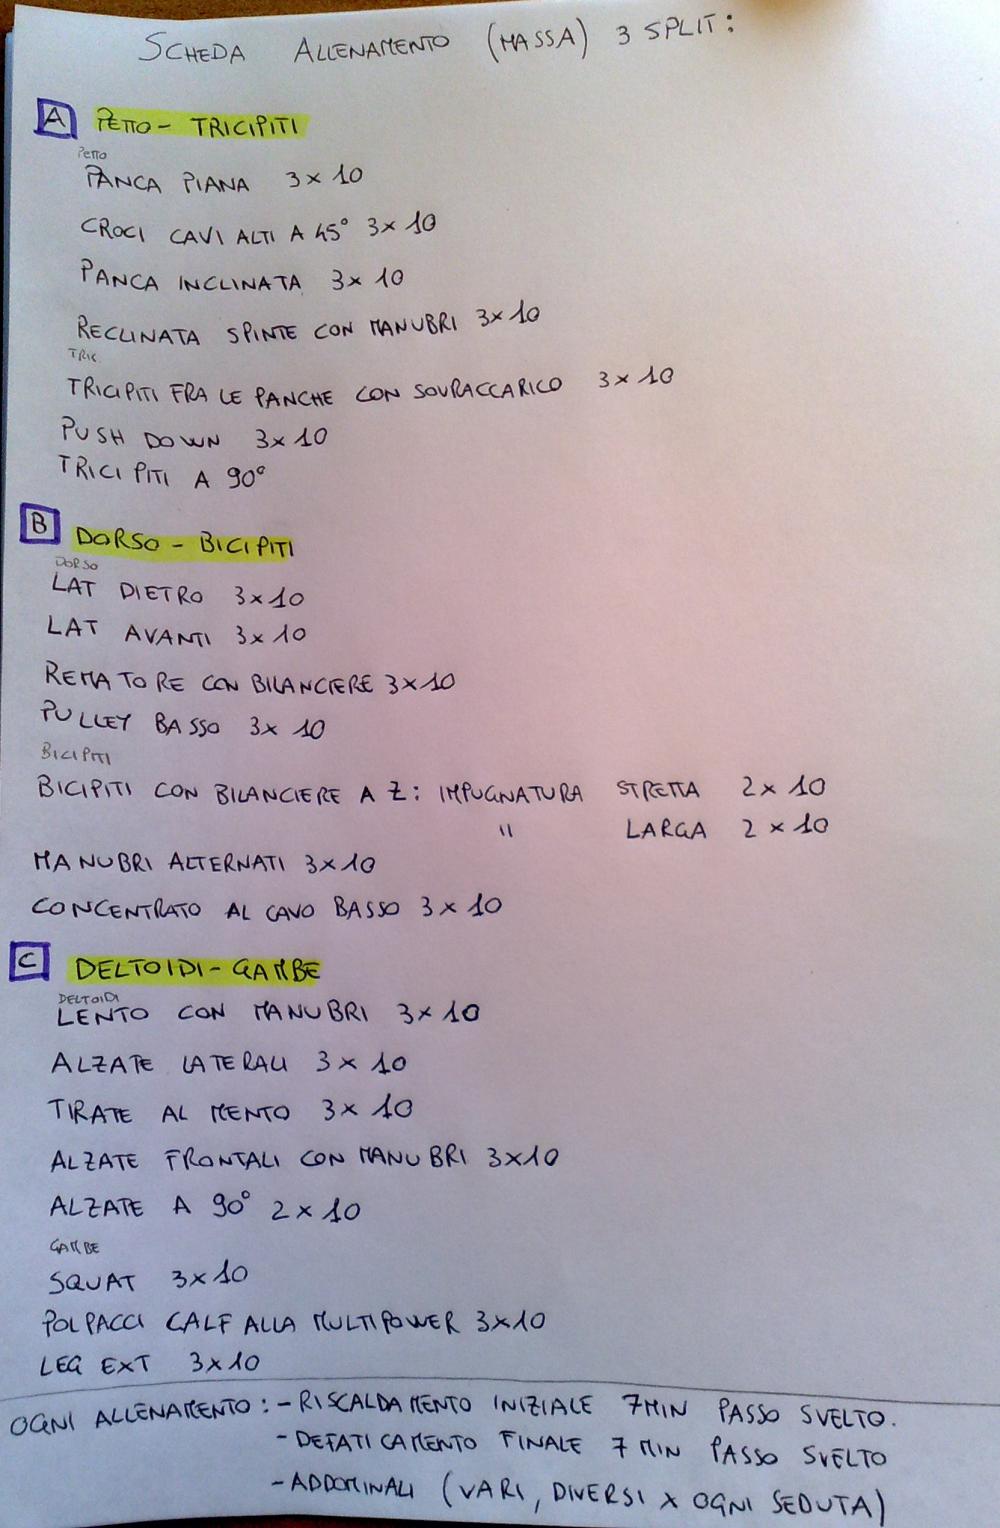 SCHEDA ALLENAMENTO (MASSA) 3 SPLIT:
A PETTO - TRICIPITI
PETTO
PANCA PIANA 3x10
CROCI CAVI ALTI A 45° 3x10
PANCA INCLINATA 3x10
RECLINATA SPINTE CON MANUBRI 3x10
TRIC
TRICIPITI FRA LE PANCHE CON SOVRACCARICO 3x10
PUSH DOWN 3x10
TRICIPITI A 90°
B DORSO - BICIPITI
DORSO
LAT DIETRO 3x10
LAT AVANTI 3x10
REMATORE CON BILANCIERE 3x10
PULLEY BASSO 3x10
BICIPITI
BICIPITI CON BILANCIERE A Z: IMPUGNATURA STRETTA 2x10
" LARGA 2x10
MANUBRI ALTERNATI 3x10
CONCENTRATO AL CAVO BASSO 3x10
C DELTOIDI - GAMBE
DELTOIDI
LENTO CON MANUBRI 3x10
ALZATE LATERALI 3x10
TIRATE AL MENTO 3x10
ALZATE FRONTALI CON MANUBRI 3x10
ALZATE A 90° 2x10
GAMBE
SQUAT 3x10
POLPACCI CALF ALLA MULTIPOWER 3x10
LEG EXT 3x10
OGNI ALLENAMENTO: - RISCALDAMENTO INIZIALE 7MIN PASSO SVELTO.
- DEFATICAMENTO FINALE 7 MIN PASSO SVELTO
- ADDOMINALI (VARI, DIVERSI X OGNI SEDUTA)